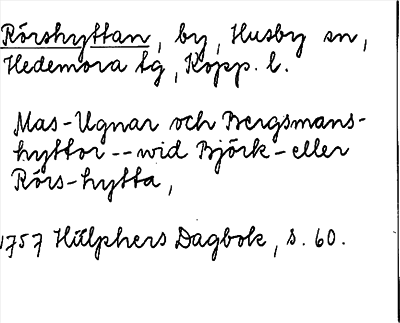 Rörshyttan, by, Husby sn,
Hedemora tg, Kopp. l.
Mas-Ugnar och Bergsmans-
hyttor -- wid Björk- eller
Rörs-hytta,
1757 Hülphers Dagbok, s. 60.